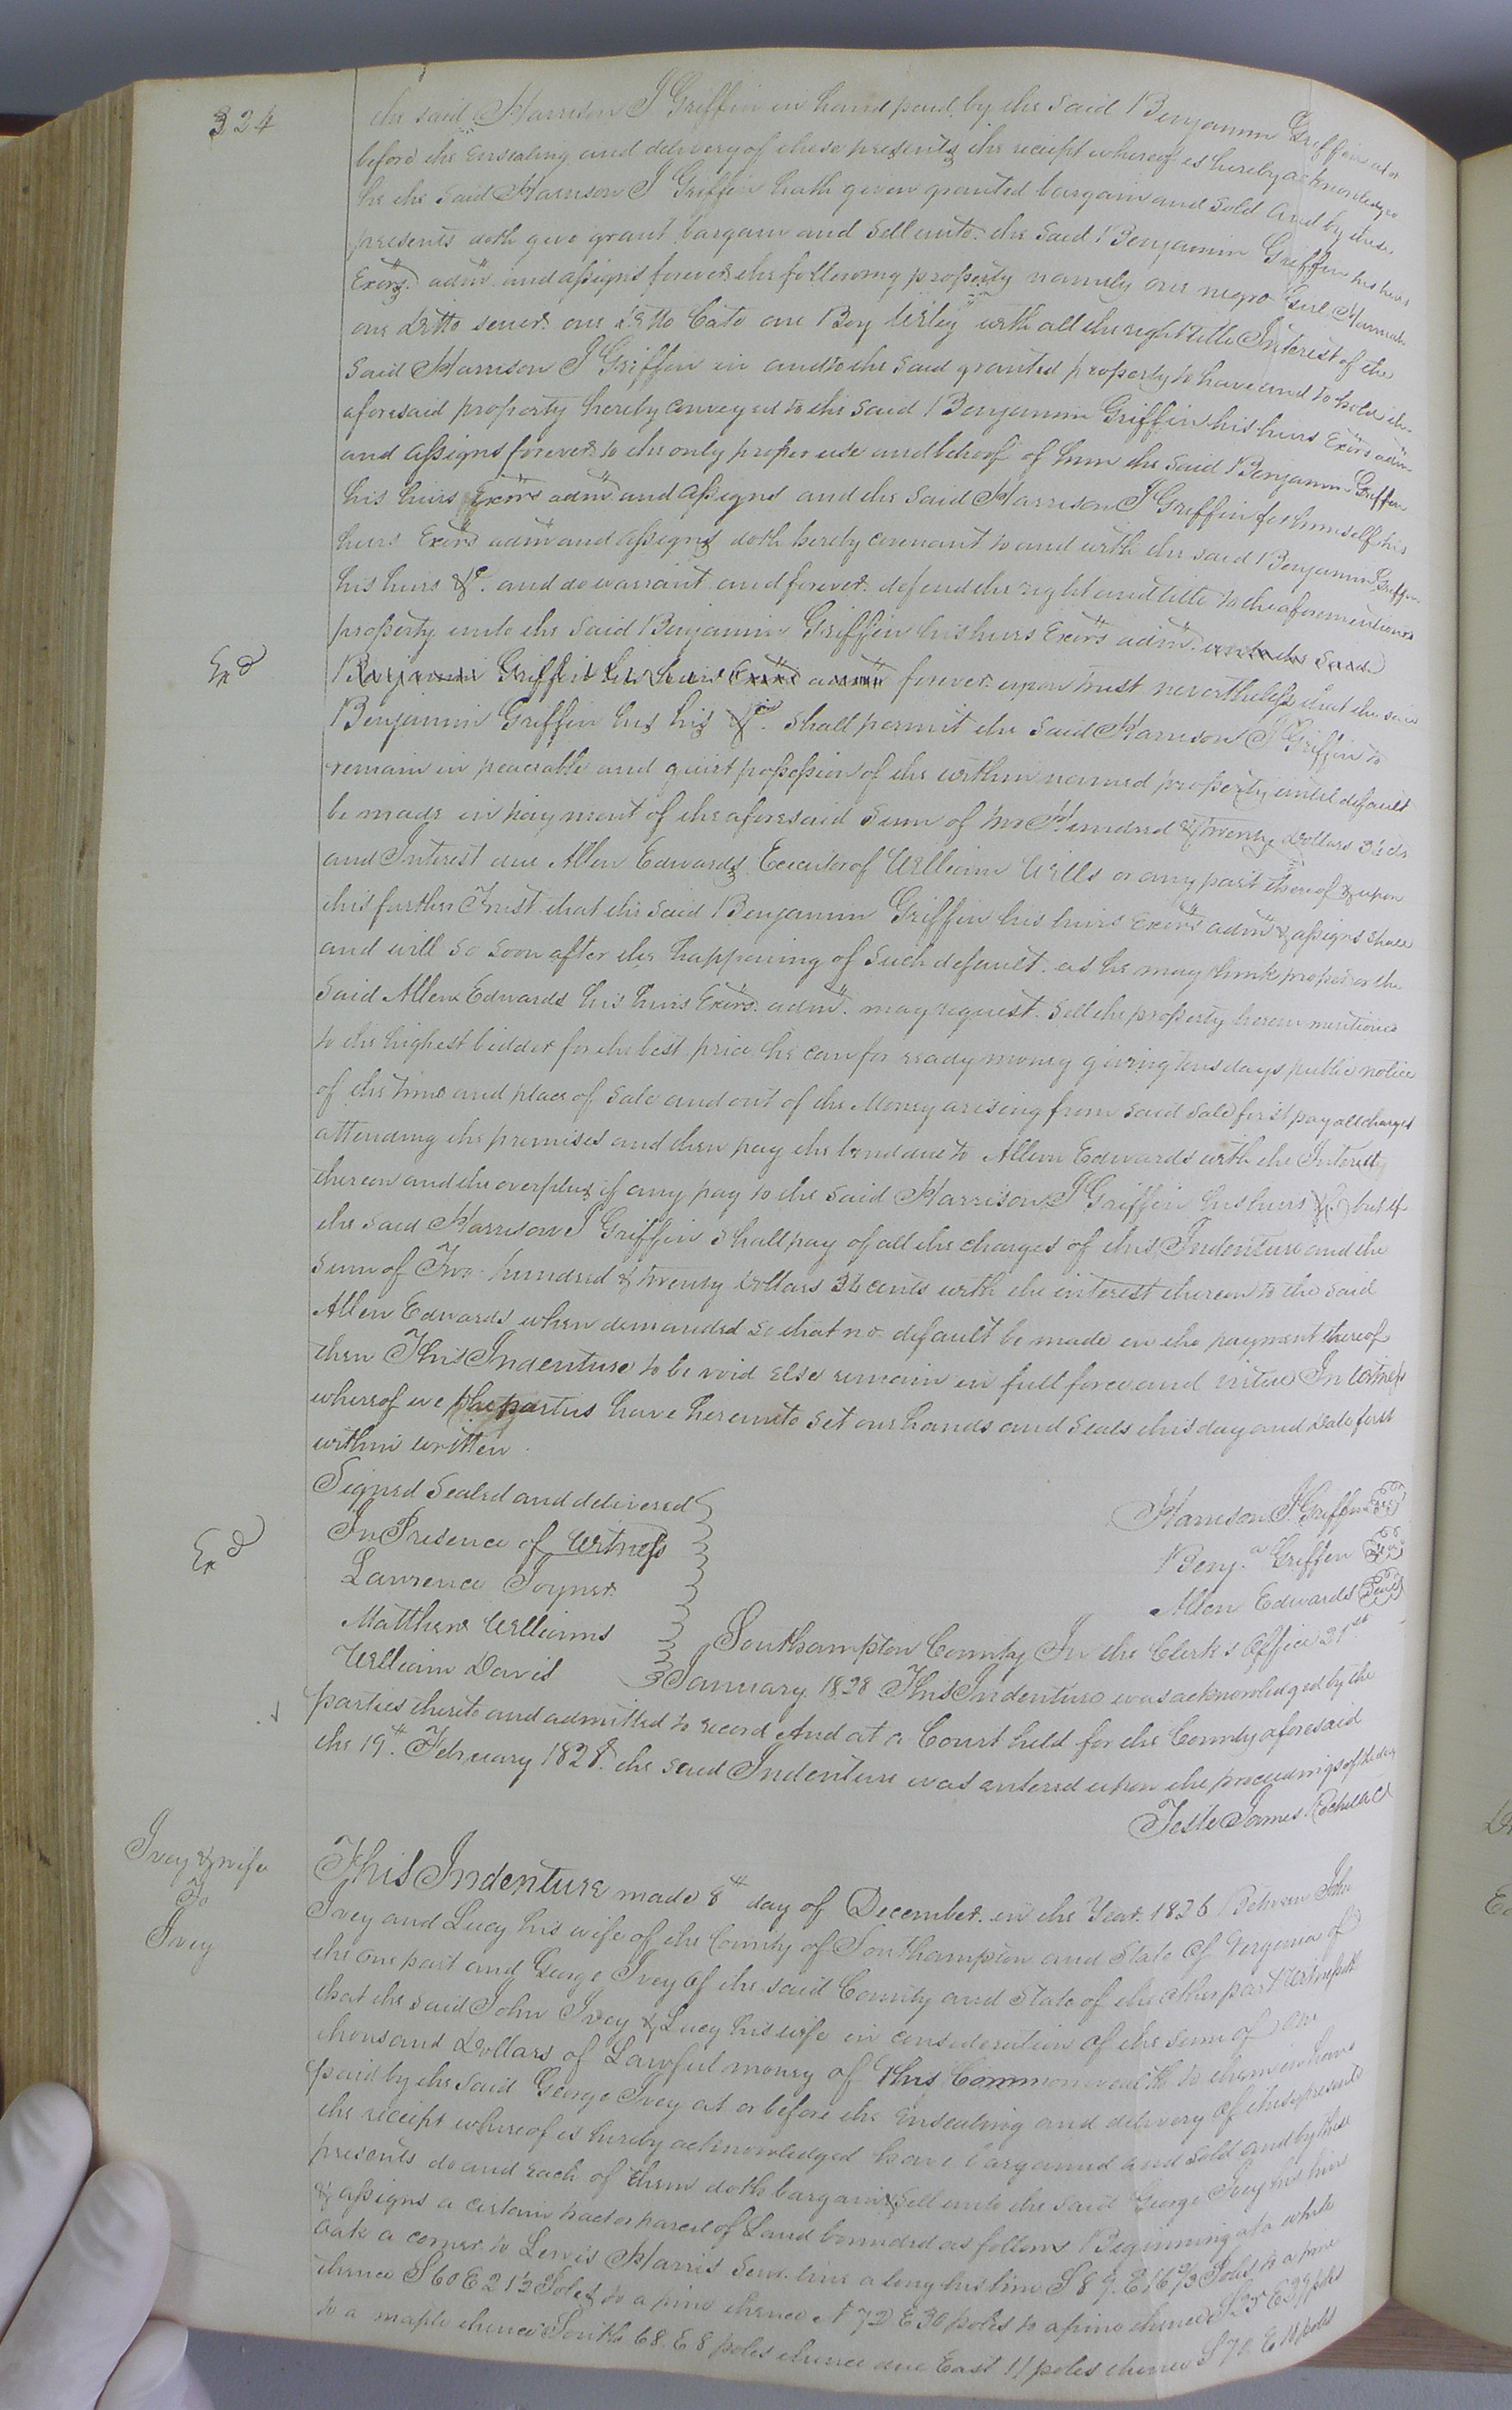 324
the said Harrison J Griffin in hand paid by the said Benjamin Griffin at or
before the ensealing and delivery of these presents the receipt whereof is hereby acknowledged
he the said Harrison J Griffin hath given granted bargain and sold and by these
presents doth give grant bargain and sell unto the said Benjamin Griffin his heirs
Exors. adm. and assigns forever the following property namely one negro Girl Hannah
one ditto one ditto Cate one Boy Wiley with all the right title Interest of the
said Harrison J Griffin in and to the said granted property to have and to hold the
aforesaid property hereby conveyed to the said Benjamin Griffin his heirs Exors adm
and assigns forever to the only proper use and behoof of him the said Benjamin Griffin
his heirs Exors adm and assigns and the said Harrison J Griffin for himself his
heirs Exors adm and assigns doth hereby covenant to and with the said Benjamin Griffin
his heirs &c. and do warrant and forever defend the right and title to the aforementioned
property unto the said Benjamin Griffin his heirs Exors adm. unto the said
Exd
Benjamin Griffin his heirs Exors adm forever upon trust nevertheless that the said
Benjamin Griffin his his &c. shall permit the said Harrison J Griffin to
remain in peaceable and quiet possession of the within named property until default
be made in payment of the aforesaid sum of two Hundred & twenty dollars 36 cts
and Interest due Allen Edwards Executor of William Wills or any part thereof & upon
this further Trust that the said Benjamin Griffin his heirs Exors adm & assigns shall
and will so soon after the happening of such default as he may think proper or the
said Allen Edwards his heirs Exors. adm. may request. Sell the property herein mentioned
to the highest bidder for the best price he can for ready money giving tens days public notice
of the time and place of sale and out of the Money arising from said sale first pay all charges
attending the premises and then pay the bond due to Allen Edwards with the Interest
thereon and the overplus if any pay to the said Harrison J Griffin his heirs &c but if
the said Harrison J Griffin shall pay of all the charges of this Indenture and the
sum of Two hundred & twenty dollars 36 cents with the interest thereon to the said
Allen Edwards when demanded so that no default be made in the payment thereof
then This Indenture to be void else remain in full force and virtue In Witness
whereof we the parties have hereunto set our hands and seals this day and date first
within written
Signed Sealed and delivered
In Presence of Witness
Exd
Lawrence Joyner
Matthew Williams
William David
Harrison J. Griffin Seal
Benj.a Griffin Seal
Allen Edwards Seal
Southampton County In the Clerk's Office 21st
January 1828 This Indenture was acknowledged by the
parties thereto and admitted to record And at a Court held for the County aforesaid
the 19th. February 1828. the said Indenture was entered upon the proceedings of the day
Teste James Rochelle C
Ivey & wife
To
Ivey
This Indenture made 8th day of December in the Year 1826 Between John
Ivey and Lucy his wife of the County of Southampton and State of Virginia of
the one part and George Ivey of the said County and State of the other part Witnesseth
that the said John Ivey & Lucy his wife in consideration of the sum of one
thousand Dollars of Lawful money of this Commonwealth to them in hand
paid by the said George Ivey at or before the ensealing and delivery of these presents
the receipt whereof is hereby acknowledged have bargained and sold and by these
presents do and each of them doth bargain & sell unto the said George Ivey his heirs
& assigns a certain tract or parcel of Land bounded as follows Beginning at a white
oak a corner to Lewis Harris Senr. line along his line S 89. E 16 2/3 Poles to a pine
thence S 60 E 21 1/2 Poles to a pine thence N 72 E 30 poles to a pine thence S 35 E 39 poles
to a maple thence South 68. E 8 poles thence due East 11 poles thence S 71. E 18 poles